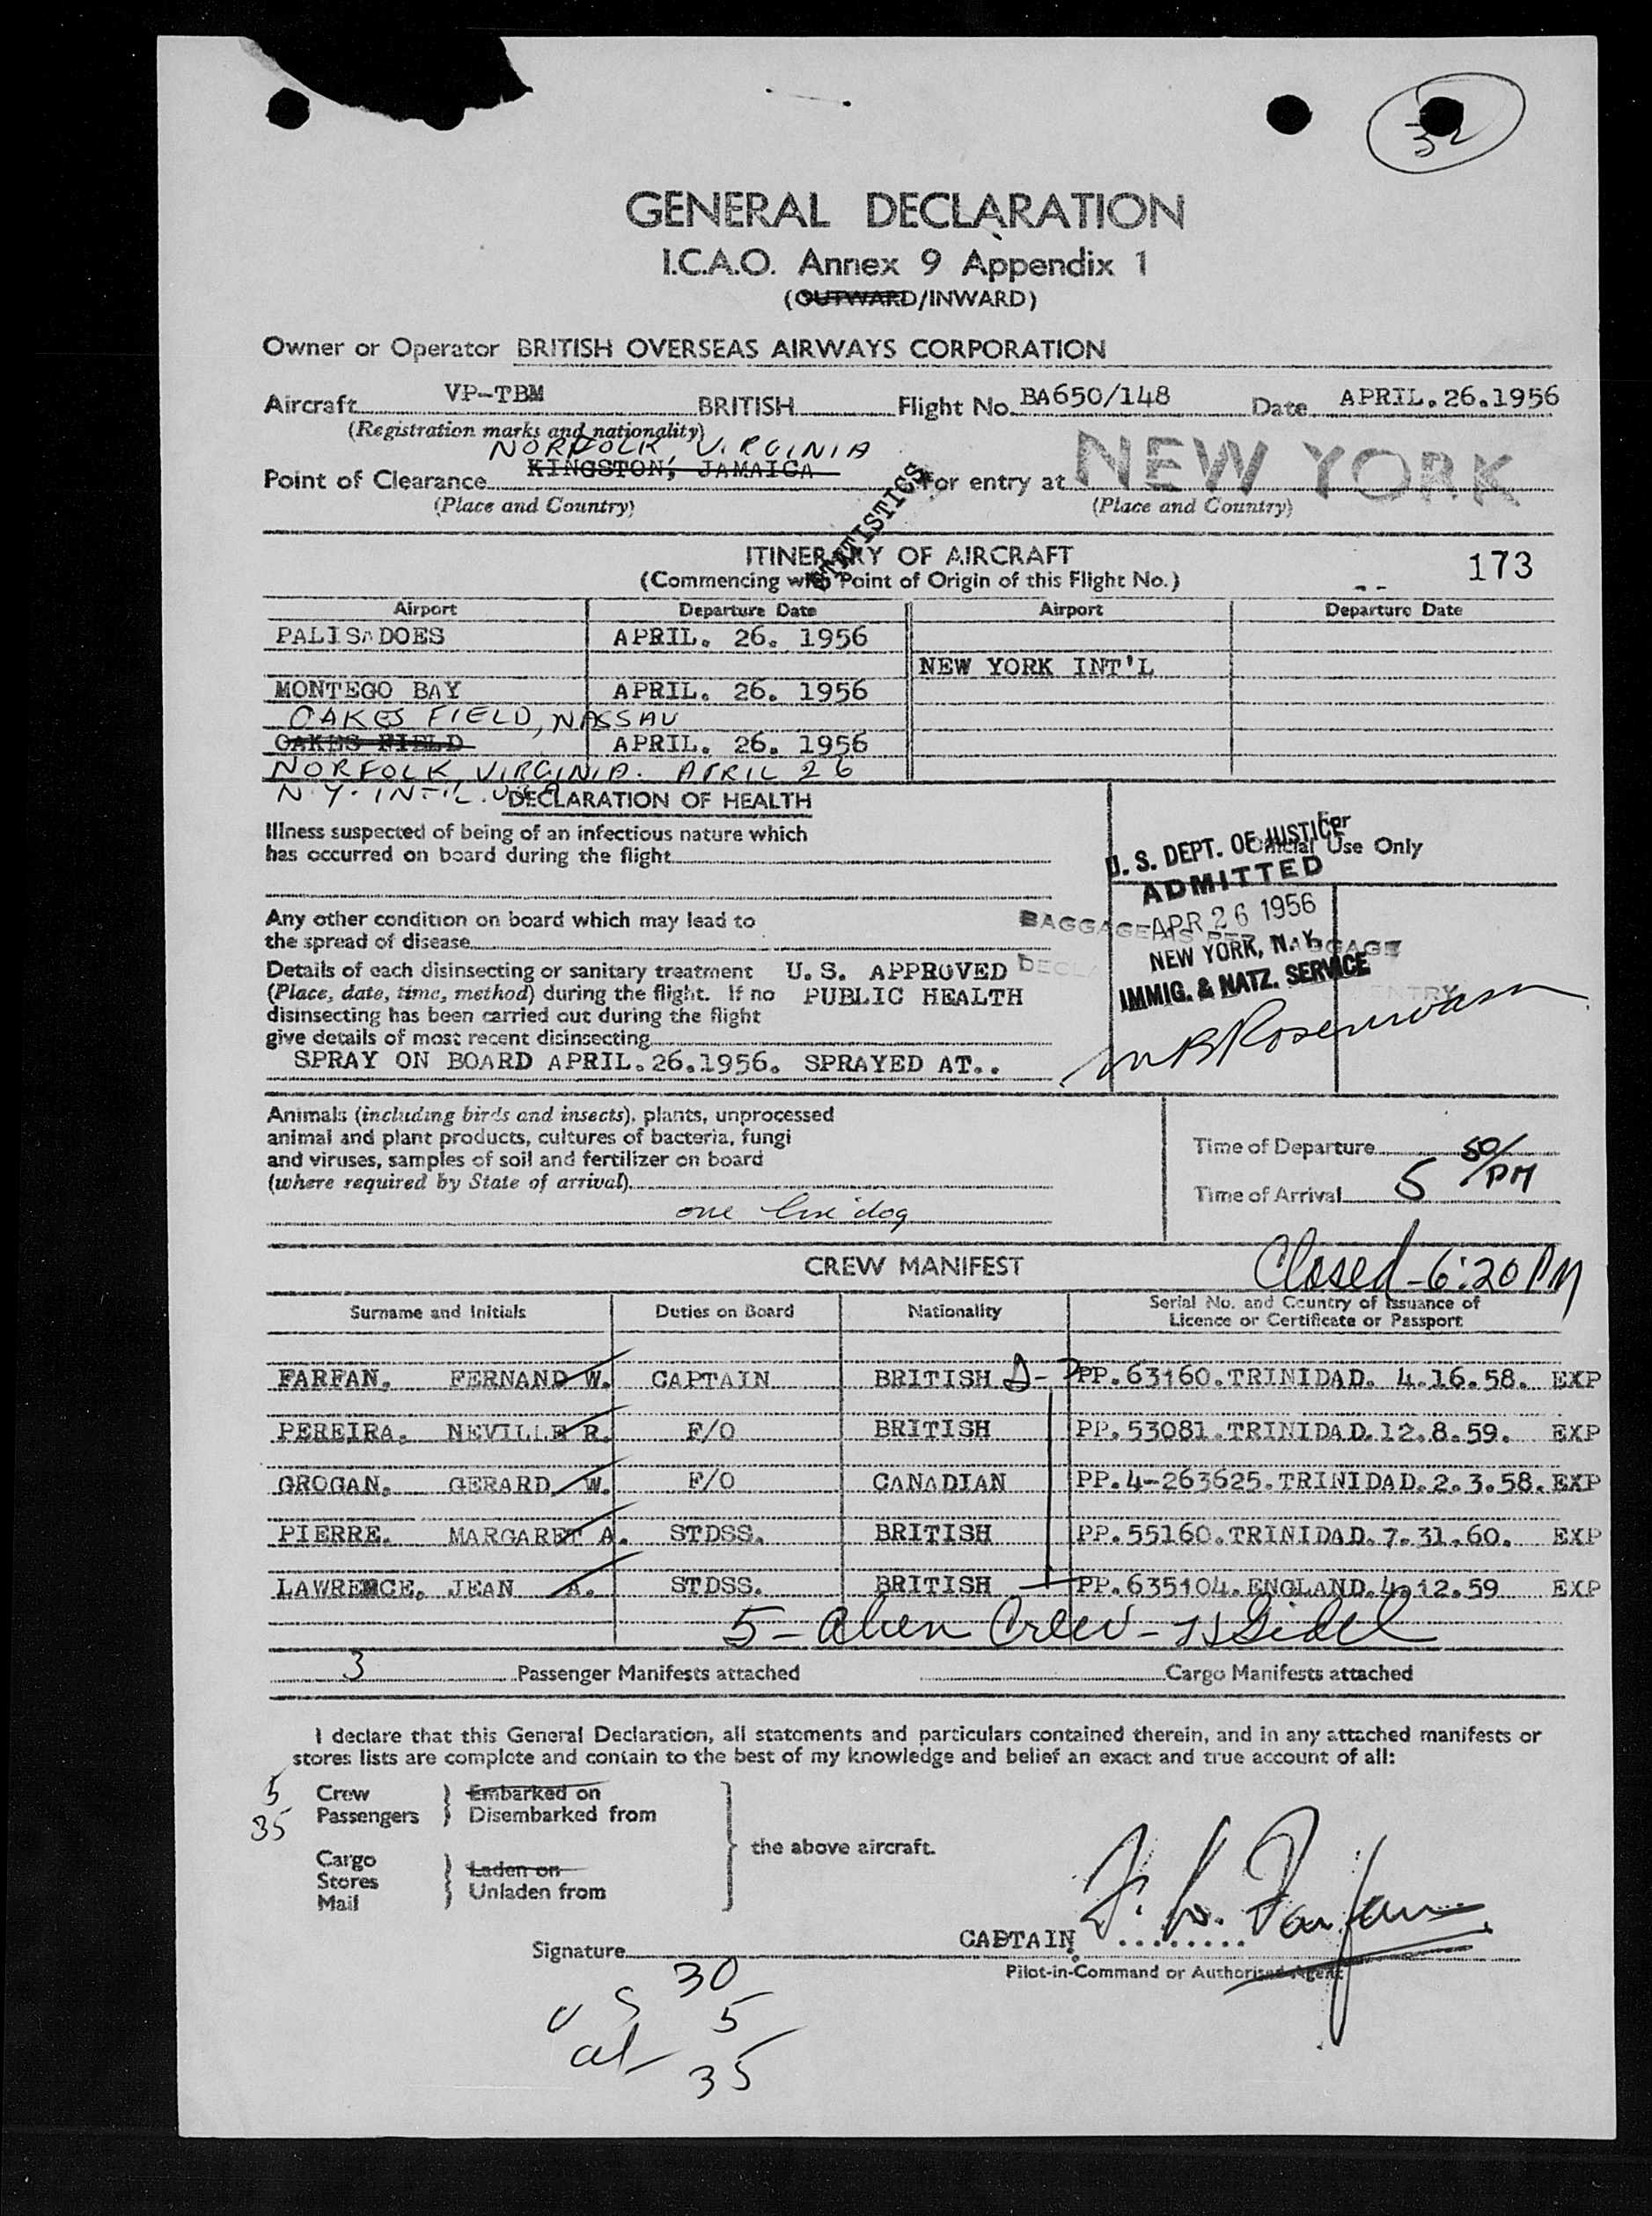 32
GENERAL DECLARATION
I.C.A.O. Annex 9 Appendix 1
(OUTWARD/INWARD)
Owner or Operator BRITISH OVERSEAS AIRWAYS CORPORATION
Aircraft VP-TBM BRITISH Flight No. BA650/148 Date APRIL.26.1956
(Registration marks and nationality)
NORFOLK, VIRGINIA
Point of Clearance KINGSTON, JAMAICA For entry at NEW YORK
(Place and Country) (Place and Country)
STATISTICS
ITINERARY OF AIRCRAFT
173
(Commencing with Point of Origin of this Flight No.)
Airport Departure Date Airport Departure Date
PALISADOES APRIL. 26. 1956
NEW YORK INT'L
MONTEGO BAY APRIL. 26. 1956
OAKES FIELD, NASSAU
OAKES FIELD APRIL. 26. 1956
NORFOLK, VIRGINIA. APRIL 26
N.Y. INT'L. USA
DECLARATION OF HEALTH
Illness suspected of being of an infectious nature which
has occurred on board during the flight
For Official Use Only
U. S. DEPT. OF JUSTICE
ADMITTED
APR 26 1956
NEW YORK, N.Y.
IMMIG. & NATZ. SERVICE
BAGGAGE AS PER BAGGAGE
ENTRY
Any other condition on board which may lead to
the spread of disease
Details of each disinsecting or sanitary treatment U.S. APPROVED
(Place, date, time, method) during the flight. If no PUBLIC HEALTH
disinsecting has been carried out during the flight
give details of most recent disinsecting
SPRAY ON BOARD APRIL.26.1956. SPRAYED AT..
Animals (including birds and insects), plants, unprocessed
animal and plant products, cultures of bacteria, fungi
and viruses, samples of soil and fertilizer on board
(where required by State of arrival)
one live dog
Time of Departure
Time of Arrival 5 50/PM
CREW MANIFEST
Closed - 6:20 PM
Surname and Initials Duties on Board Nationality Serial No. and Country of Issuance of
Licence or Certificate or Passport
FARFAN, FERNAND W. CAPTAIN BRITISH D- PP.63160.TRINIDAD. 4.16.58. EXP
PEREIRA, NEVILLE R. F/O BRITISH PP.53081.TRINIDAD.12.8.59. EXP
GROGAN, GERARD W. F/O CANADIAN PP.4-263625.TRINIDAD.2.3.58. EXP
PIERRE. MARGARET A. STDSS. BRITISH PP.55160.TRINIDAD.7.31.60. EXP
LAWRENCE, JEAN A. STDSS. BRITISH PP.635104.ENGLAND.4.12.59 EXP
5 - Alien Crew -
3 Passenger Manifests attached Cargo Manifests attached
I declare that this General Declaration, all statements and particulars contained therein, and in any attached manifests or
stores lists are complete and contain to the best of my knowledge and belief an exact and true account of all:
5 Crew Embarked on
35 Passengers Disembarked from
the above aircraft.
Cargo Laden on
Stores
Mail Unladen from
Signature CAPTAIN F. W. Farfan
Pilot-in-Command or Authorised Agent
US 30
al 5
35